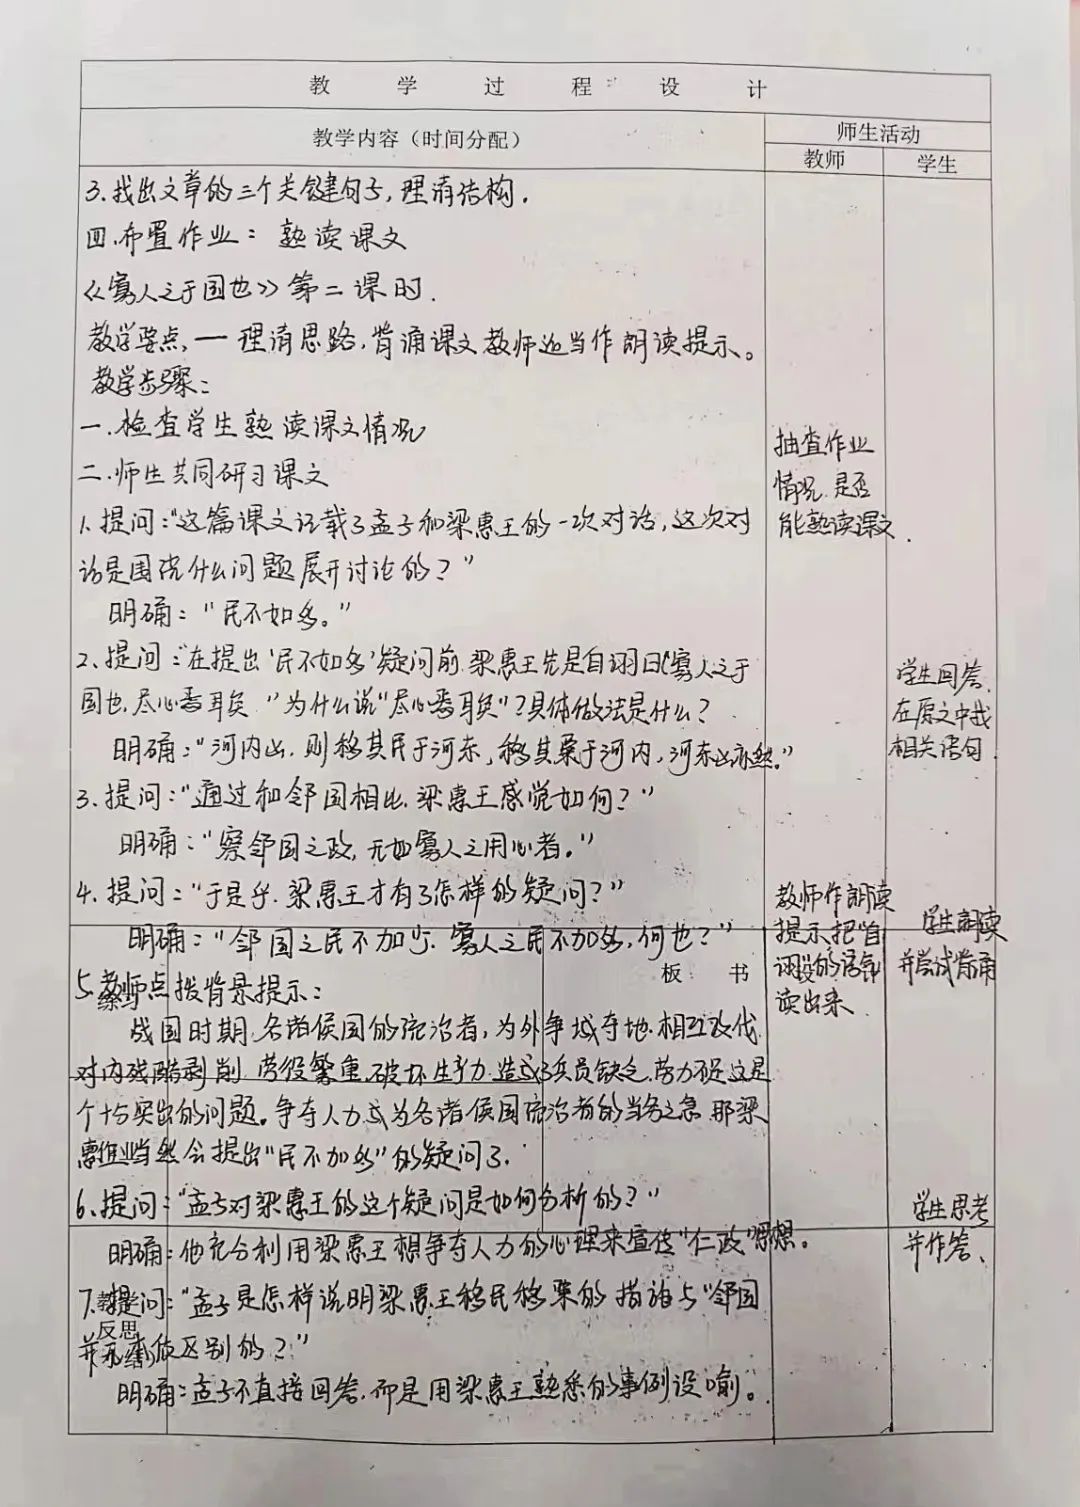 教学过程设计
教学内容（时间分配）
师生活动
教师
学生
3.找出文章的三个关键句子，理清结构.
四.布置作业：熟读课文
《寡人之于国也》第二课时.
教学要点，一理清思路，背诵课文教师适当作朗读提示。
教学步骤：
一.检查学生熟读课文情况
二.师生共同研习课文
1.提问："这篇课文记载了孟子和梁惠王的一次对话，这次对
话是围绕什么问题展开讨论的？"
明确："民不加多。"
2、提问："在提出'民不加多'疑问前.梁惠王先是自诩曰"寡人之于
国也，尽心焉耳矣"为什么说"尽心焉耳矣"？具体做法是什么？
明确："河内凶，则移其民于河东，移其粟于河内，河东凶亦然。"
3.提问："通过和邻国相比.梁惠王感觉如何？"
明确："察邻国之政，无如寡人之用心者。"
4.提问："于是乎.梁惠王才有了怎样的疑问？"
明确："邻国之民不加少.寡人之民不加多，何也？"
板书
5.教师点拨背景提示：
战国时期.各诸侯国的统治者，为外争城夺地.相互攻伐.
对内残酷剥削.劳役繁重.破坏生产力.造成了兵员缺乏.劳力不足.这是
个十分突出的问题。争夺人力成为各诸侯国统治者的当务之急.那梁
惠王当然会提出"民不加多"的疑问了.
6、提问："孟子对梁惠王的这个疑问是如何分析的？"
明确：他充分利用梁惠王想争夺人力的心理来宣传"仁政"思想。
7.提问："孟子是怎样说明梁惠王移民移粟的措施与"邻国
反思
并无本质区别的？"
明确：孟子不直接回答，而是用梁惠王熟悉的事例设喻。
抽查作业
情况.是否
能熟读课文.
教师作朗读
提示.把"自
诩"的语气
读出来.
学生回答.
在原文中找
相关语句.
学生朗读
并尝试背诵
学生思考
并作答、